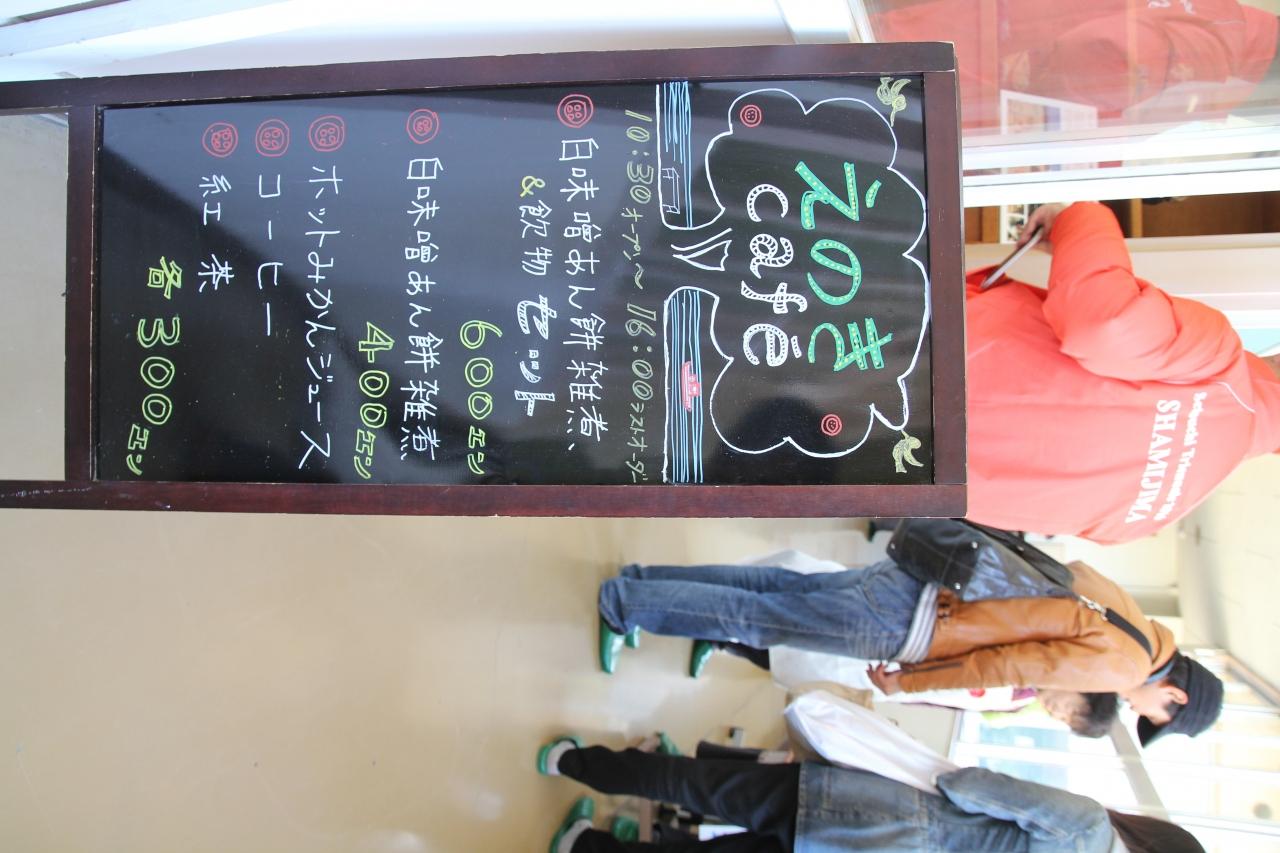 えのき
café
10:30オープン〜16:00ラストオーダー
白味噌あん餅雑煮
&飲物セット
600エン
白味噌あん餅雑煮
400エン
ホットみかんジュース
コーヒー
紅茶
各300エン
Setouchi Triennale 2016
SHAMIJIMA